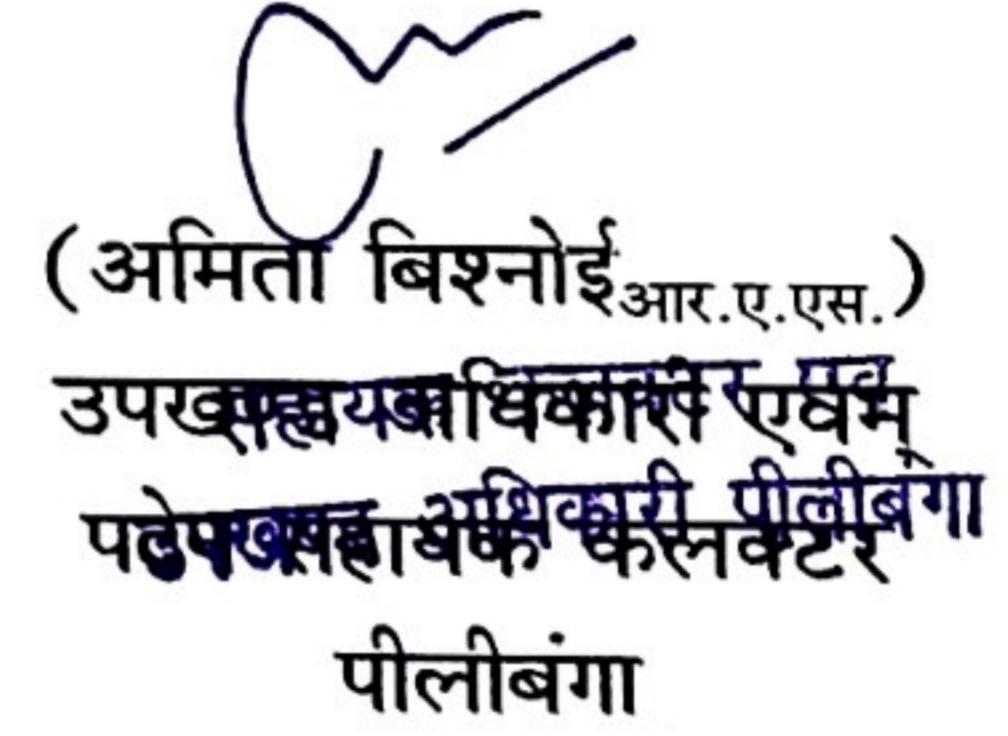 (अमिता बिश्नोई आर.ए.एस.)
उपखण्ड अधिकारी एवम्
पदेन सहायक कलक्टर
पीलीबंगा
सहायक कलक्टर एवं
उपखण्ड अधिकारी पीलीबंगा